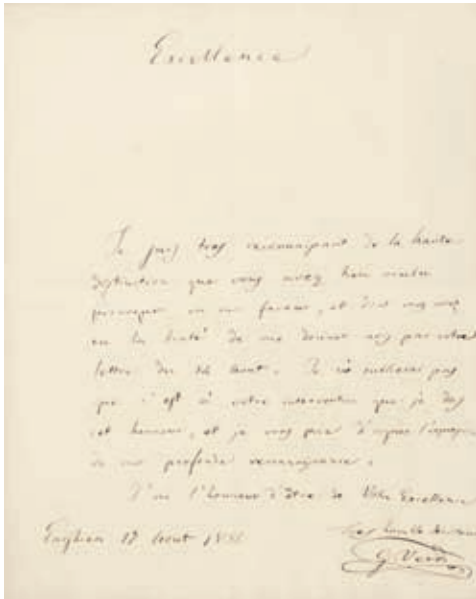 Excellence
Je suis très reconnaissant de la haute
distinction que vous avez bien voulu
provoquer en ma faveur, et dont vous avez
eu la bonté de me donner avis par votre
lettre du Aout. Je n'oublierai pas
que c'est à votre intervention que je dois
cet honneur, et je vous prie d'agréer l'
de ma profonde reconnaissance.
J'ai l'honneur d'être de Votre Excellence
très humble
Enghien 12 Aout
G Verdi